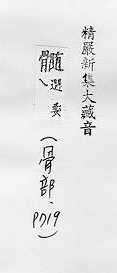 精嚴新集大藏音
髓選委
(骨部, P019)